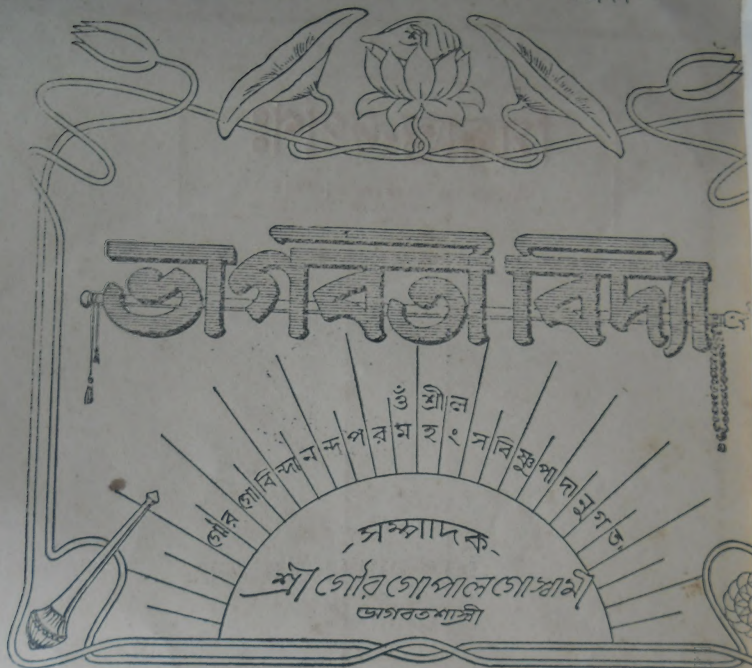 ভাগবতী বিদ্যা
ওঁ শ্রী ল
গৌর গোবিন্দানন্দ পরমহংস বিষ্ণুপাদানুগত
সম্পাদক
শ্রী গৌর গোপাল গোস্বামী
ভাগবতশাস্ত্রী